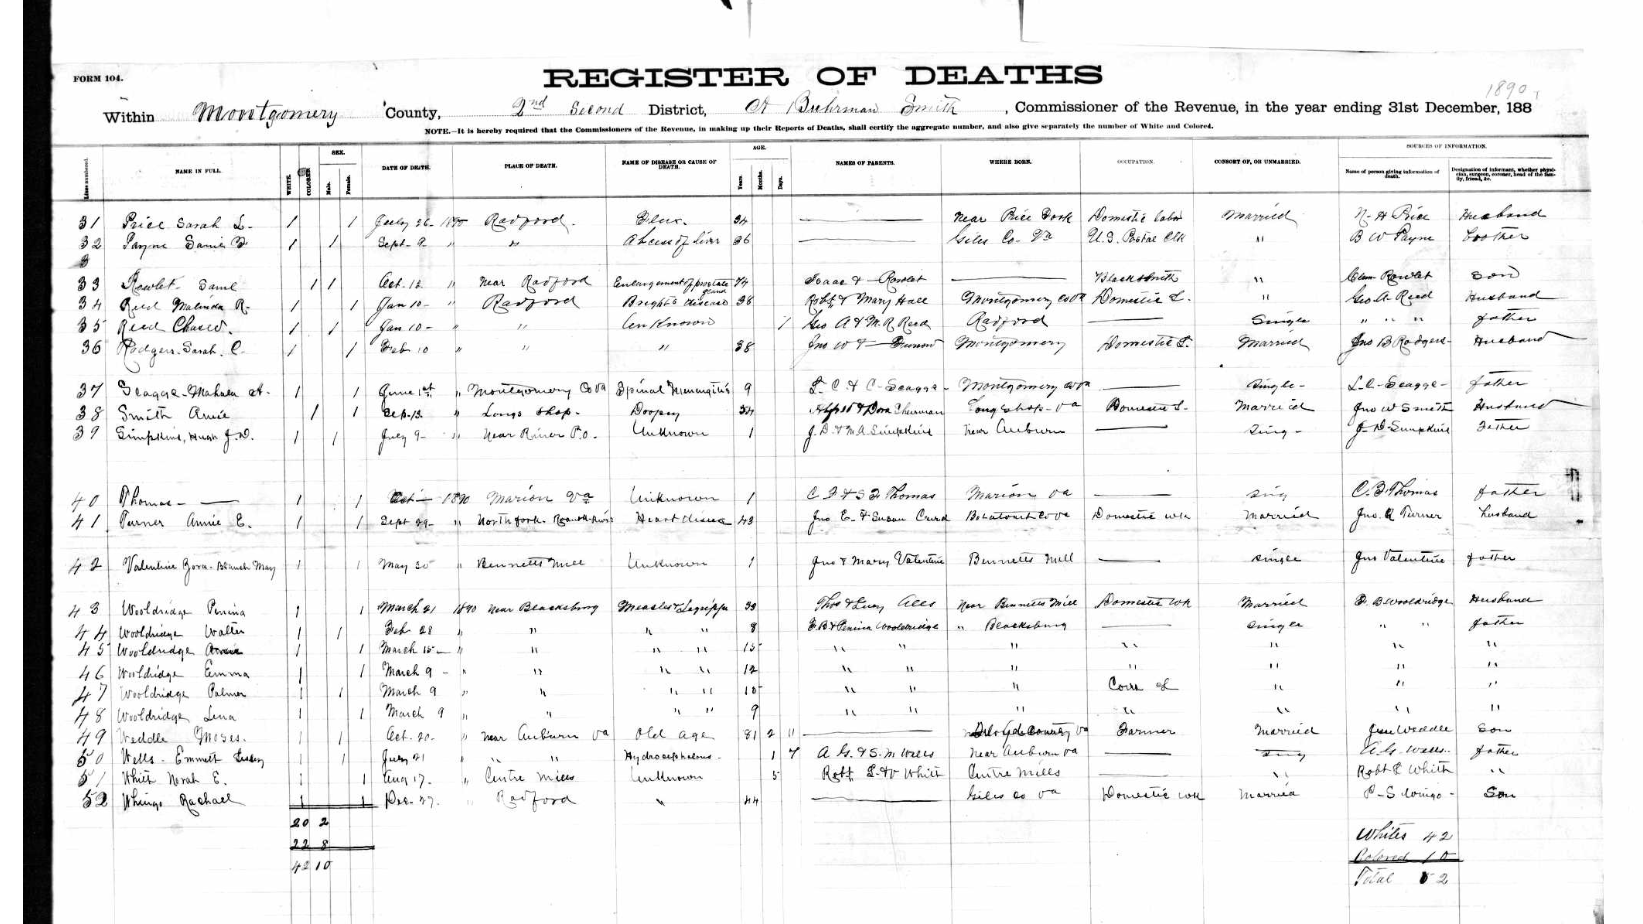 FORM 104.
REGISTER OF DEATHS
1890,
Within Montgomery County, 2nd Second District, A Buhrman Smith, Commissioner of the Revenue, in the year ending 31st December, 188
NOTE.—It is hereby required that the Commissioners of the Revenue, in making up their Reports of Deaths, shall certify the aggregate number, and also give separately the number of White and Colored.
SEX. AGE. SOURCES OF INFORMATION.
NAME IN FULL. WHITE. COLORED. Male. Female. DATE OF DEATH. PLACE OF DEATH. NAME OF DISEASE OR CAUSE OF DEATH. Years Months. Days. NAMES OF PARENTS. WHERE BORN. OCCUPATION. CONSORT OF, OR UNMARRIED. Name of person giving information of death. Designation of informant, whether physician, surgeon, coroner, head of the family, friend, &c.
31 Price Sarah L. 1 1 1890 Radford. 34 near Price Fork Domestic labor Married N. H Price Husband
32 Payne 1 1 Sept. 9 " " Abcess of Liver 36 Giles Co. Va U.S. Postal Clk " B W Payne brother
3
33 Rowlet Saml 1 1 Oct. 12 " near Radford Enlargement of prostate gland 74 Isaac & Rowlet Blacksmith " Rowlet Son
34 Reed Malinda R. 1 1 Jan 10 - " Radford Brights disease 38 Robt & Mary Hall Montgomery Co Va Domestic L. " Geo A. Reed Husband
35 Reed 1 1 Jan 10 - " " Unknown 1 Geo A & M. R Reed Radford Single " " " father
36 Rodgers. Sarah. C. 1 1 Feb 10 " " " 38 Jno W & Montgomery Domestic L. Married Jno B Rodgers- Husband
37 Mahala A. 1 1 June 1st " Montgomery Co Va Spinal Meningitis 9 Montgomery Co Va Single - father
38 Smith Annie 1 1 Sep. 12 " Longs Shop. Dropsy 34 & Dora Sherman Longs shop - Va Domestic L. Married Jno W Smith Husband
39 Simpkins, Hugh J. D. 1 1 July 9 - " Near River P.O. Unknown 1 J. D. & M. A. Simpkins Near Auburn Sing - J. D. Simpkins Father
40 Thomas - 1 1 Oct - 1890 Marion Va Unknown 1 Thomas Marion Va Sing Thomas father
41 Turner Annie E. 1 1 Sept 29 - " North fork. Roanoke River Heart disease 43 Jno E. & Susan Botetourt Co Va Domestic wk Married Jno. Turner husband
42 Valentine Zora. Blanch May 1 1 May 30 " Bennetts Mill Unknown 1 Jno & Mary Valentine Bennetts Mill Single Jno Valentine father
43 Wooldridge Penina 1 1 March 21 1890 near Blacksburg Measles & Lagrippe 39 Thos & Lucy near Bennetts Mill Domestic wk Married E. B Wooldridge Husband
44 Wooldridge Walter 1 1 Feb 28 " " " " 8 E. B & Penina Wooldridge " Blacksburg Single " " father
45 Wooldridge 1 1 March 15 - " " " " 15 " " " " " " "
46 Wooldridge Emma 1 1 March 9 - " " " " 12 " " " " " "
47 Wooldridge Palmer 1 1 March 9 " " " " 10 " " " " " "
48 Wooldridge Lena 1 1 March 9 " " " " 9 " " " " " " "
49 Weddle Moses. 1 1 Oct. 20. " near Auburn Va Old Age 81 2 11 Floyd County Va Farmer Married Weddle Son
50 Wells. Emmett 1 1 July 21 " " " Hydrocephalous. 1 7 A. G. & S. M Wells near Auburn Va Sing A. G. Wells. father
51 Whitt Norah E. 1 1 Aug 17. " Centre Mills Unknown 5 Whitt Centre Mills " Robt L Whitt "
52 Rachael 1 1 Dec. 27. " Radford " 44 Giles Co Va Domestic wk Married P. S Wingo - Son
20 2
22 8
42 10
Whites 42
Colored 10
Total 52